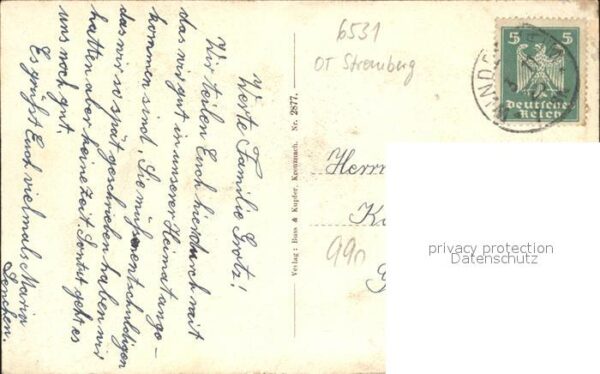 Werte Familie Grotz!
Wir teilen Euch hierdurch mit
das wir gut in unserer Heimat ange-
kommen sind. Sie müßen entschuldigen
das wir so spät geschrieben haben wir
hatten aber keine Zeit. Sonst geht es
uns noch gut.
Es grüßt Euch vielmals Maria
Verlag: Buss & Kupfer, Kreuznach. Nr. 2877.
6531
OT Stromberg
5 5
Deutsches
Reich
Herrn
99n
privacy protection
Datenschutz